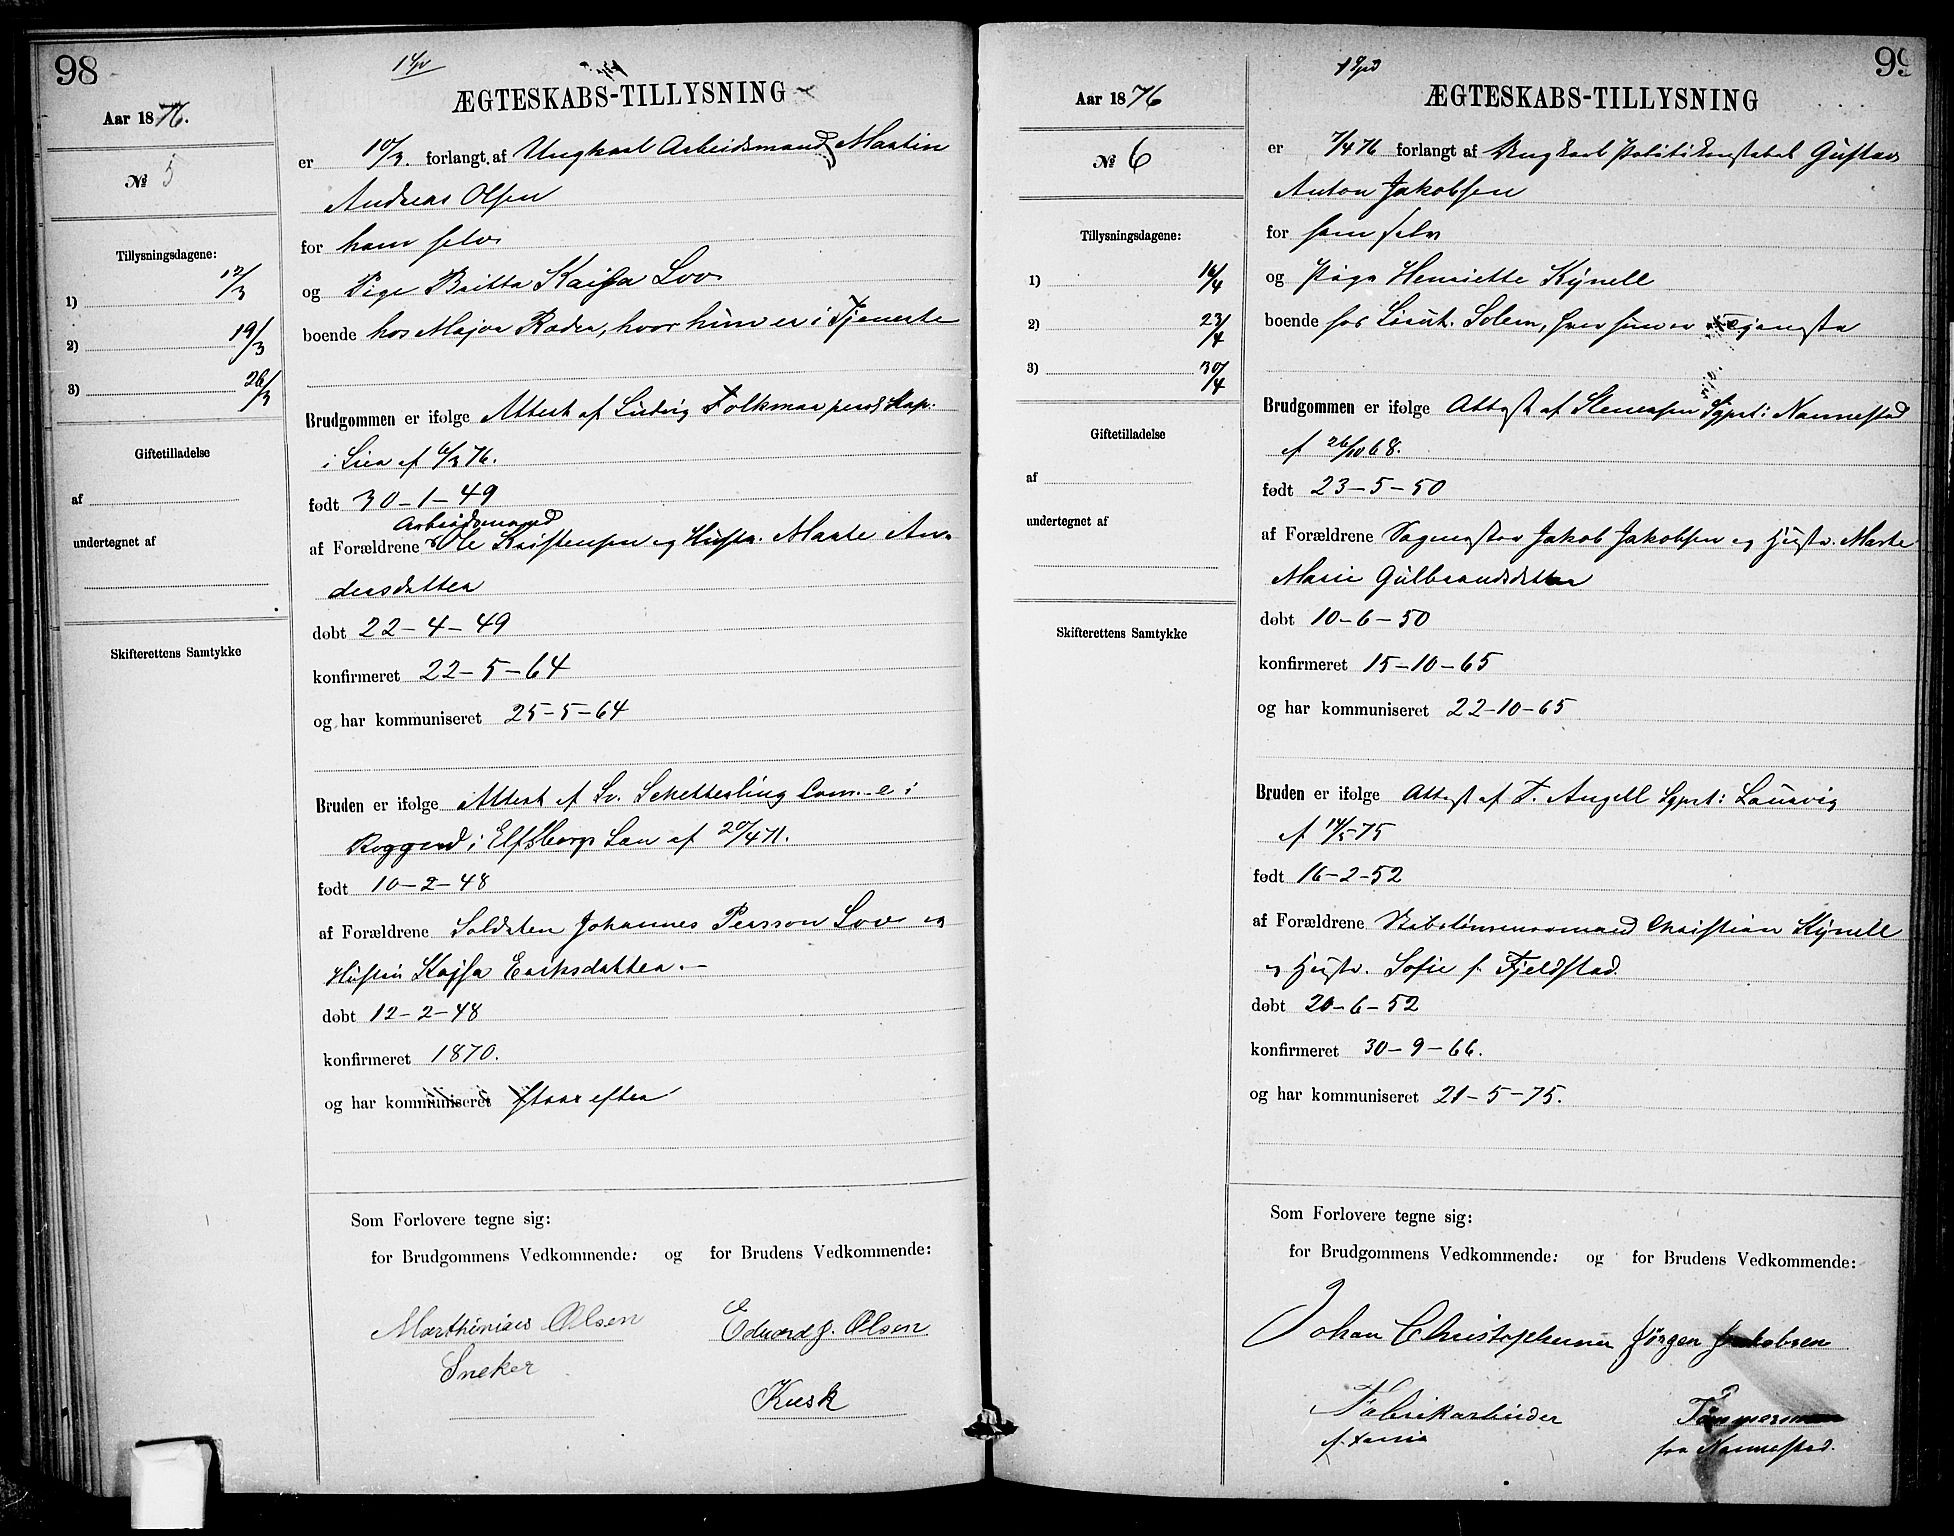 98
Aar 1876.
№ 5
Tillysningsdagene:
1) 12/3
2) 19/3
3) 26/3
Giftetilladelse
af
undertegnet af
Skifterettens Samtykke
ÆGTESKABS-TILLYSNING
er 10/3. forlangt af Ungkarl Arbeidsmand Martin
Andreas Olsen
for ham selv
og Pige Britta Kaisa Lov
boende hos Major Roder, hvor hun er i Tjeneste
Brudgommen er ifølge Attest af Ludvig Folkmar pers. Kap.
i Lier af 6/3 76.
født 30-1-49
Arbeidsmand
af Forældre Ole Kristensen og Hustr. Marte An-
dersdatter
døbt 22-4-49
konfirmeret 22-5-64
og har kommuniseret 25-5-64
Bruden er ifølge Attest af Sv. Schetterling Com. i
i Elfsborgs Län af 20/4 71.
født 10-2-48
af Forældrene Soldaten Johannes Persson Lov og
Hustru Kajsa Eriksdatter.
døbt 12-2-48
konfirmeret 1870.
og har kommuniseret staar efter
Som Forlovere tegne sig:
for Brudgommens Vedkommende: og for Brudens Vedkommende:
Marthinius Olsen Edvard J. Olsen
Sneker
Kusk
99
Aar 1876
№ 6
Tillysningsdagene:
1) 16/4
2) 23/4
3) 30/4
Giftetilladelse
af
undertegnet af
Skifterettens Samtykke
ÆGTESKABS-TILLYSNING
er 7/4 76 forlangt af Ungkarl Politikonstabel Gustav
Anton Jakobsen
for ham selv
og Pige Henriette Kynell
boende hos Lieut. Solem, hvor hun er i Tjeneste
Brudgommen er ifølge Attest af Stenersen Sgprt: Nannestad
af 26/10 68.
født 23-5-50
af Forældrene Sagmester Jakob Jakobsen og Hustr. Marte
Marie Gulbrandsdatter
døbt 10-6-50
konfirmeret 15-10-65
og har kommuniseret 22-10-65
Bruden er ifølge Attest af F. Angell Sgprt: Laurvig
af 14/5 75
født 16-2-52
af Forældrene Christian Kynell
og Hustr. Sofie f. Fjeldstad
døbt 20-6-52
konfirmeret 30-9-66.
og har kommuniseret 21-5-75.
Som Forlovere tegne sig:
for Brudgommens Vedkommende: og for Brudens Vedkommende:
Johan Christophersen Jörgen Jakobsen
Fabrikarbeider Tömmermann
fra Nannestad.